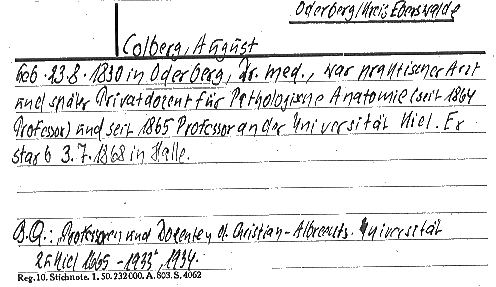 Oderberg/Kreis Eberswalde
Colberg, August
Geb. 23.8.1830 in Oderberg, Dr. med., war praktischer Arzt
und später Privatdozent für Pathologische Anatomie (seit 1864
Professor) und seit 1865 Professor an der Universität Kiel. Er
starb 3.7.1868 in Halle.
B.Q.: Professoren und Dozenten d. Christian-Albrechts-Universität
zu Kiel 1665-1933, 1934.
Reg. 10. Stichnote. 1. 50. 232000. A. 803. S. 4062